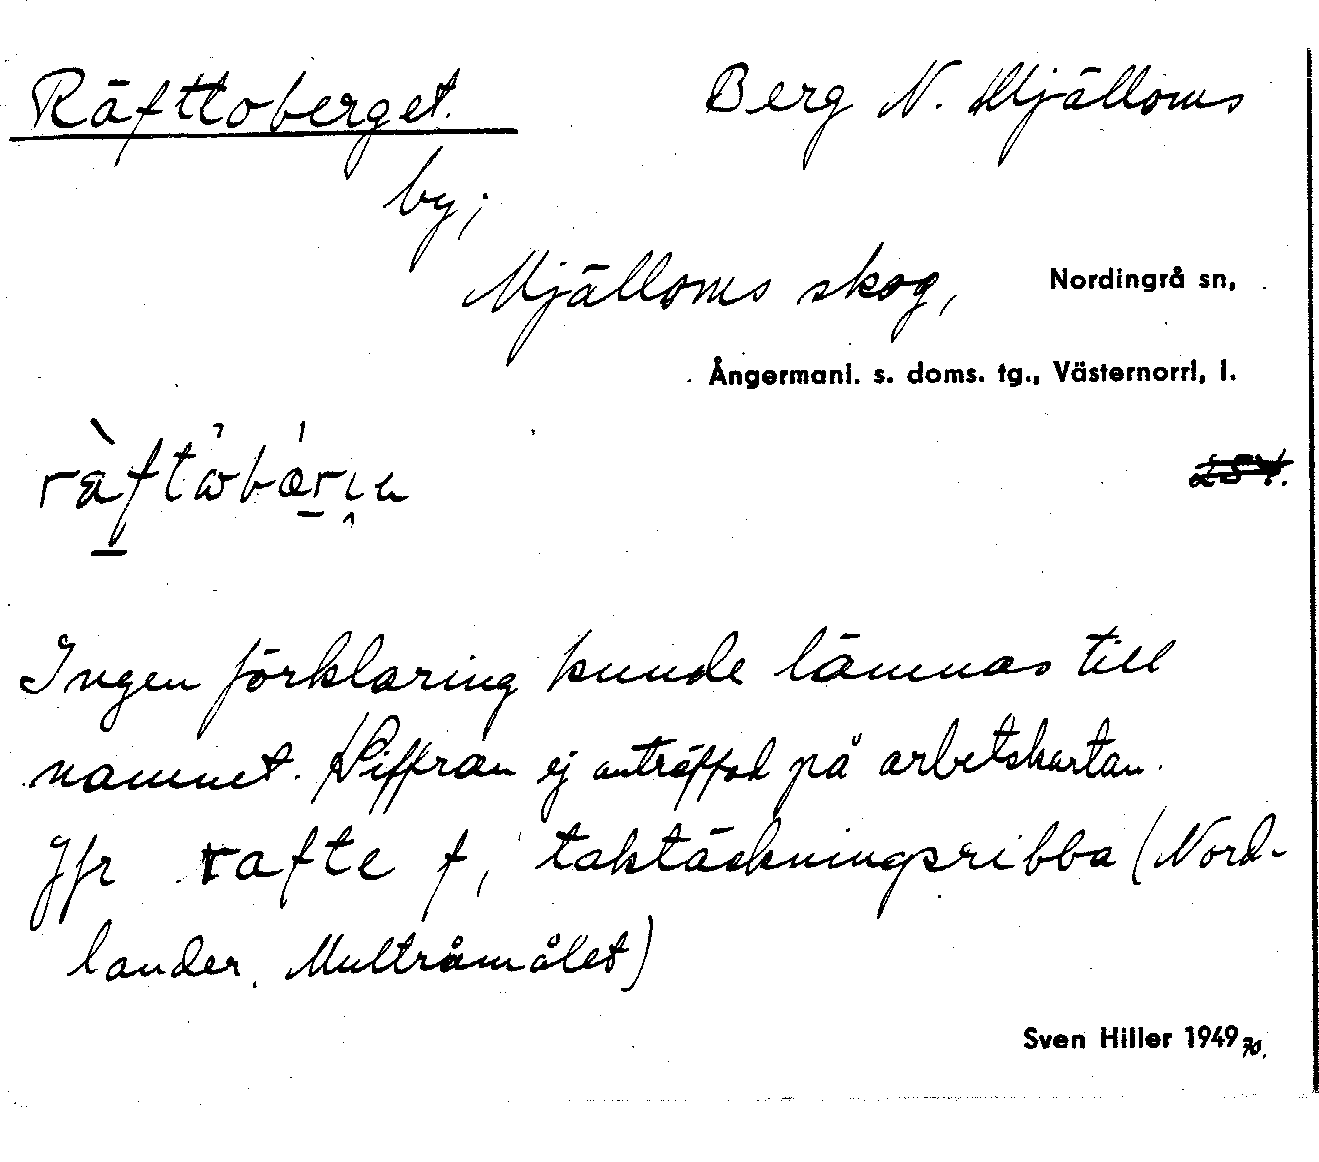 Räfttoberget. Berg N. Mjälloms
by;
Mjälloms skog, Nordingrå sn,
Ångermanl. s. doms. tg., Västernorrl, l.
Ingen förklaring kunde lämnas till
namnet. Siffran ej anträffad på arbetskartan.
Jfr rafte f, taktäckningsribba (Nord-
lander. Multråmålet)
Sven Hiller 1949